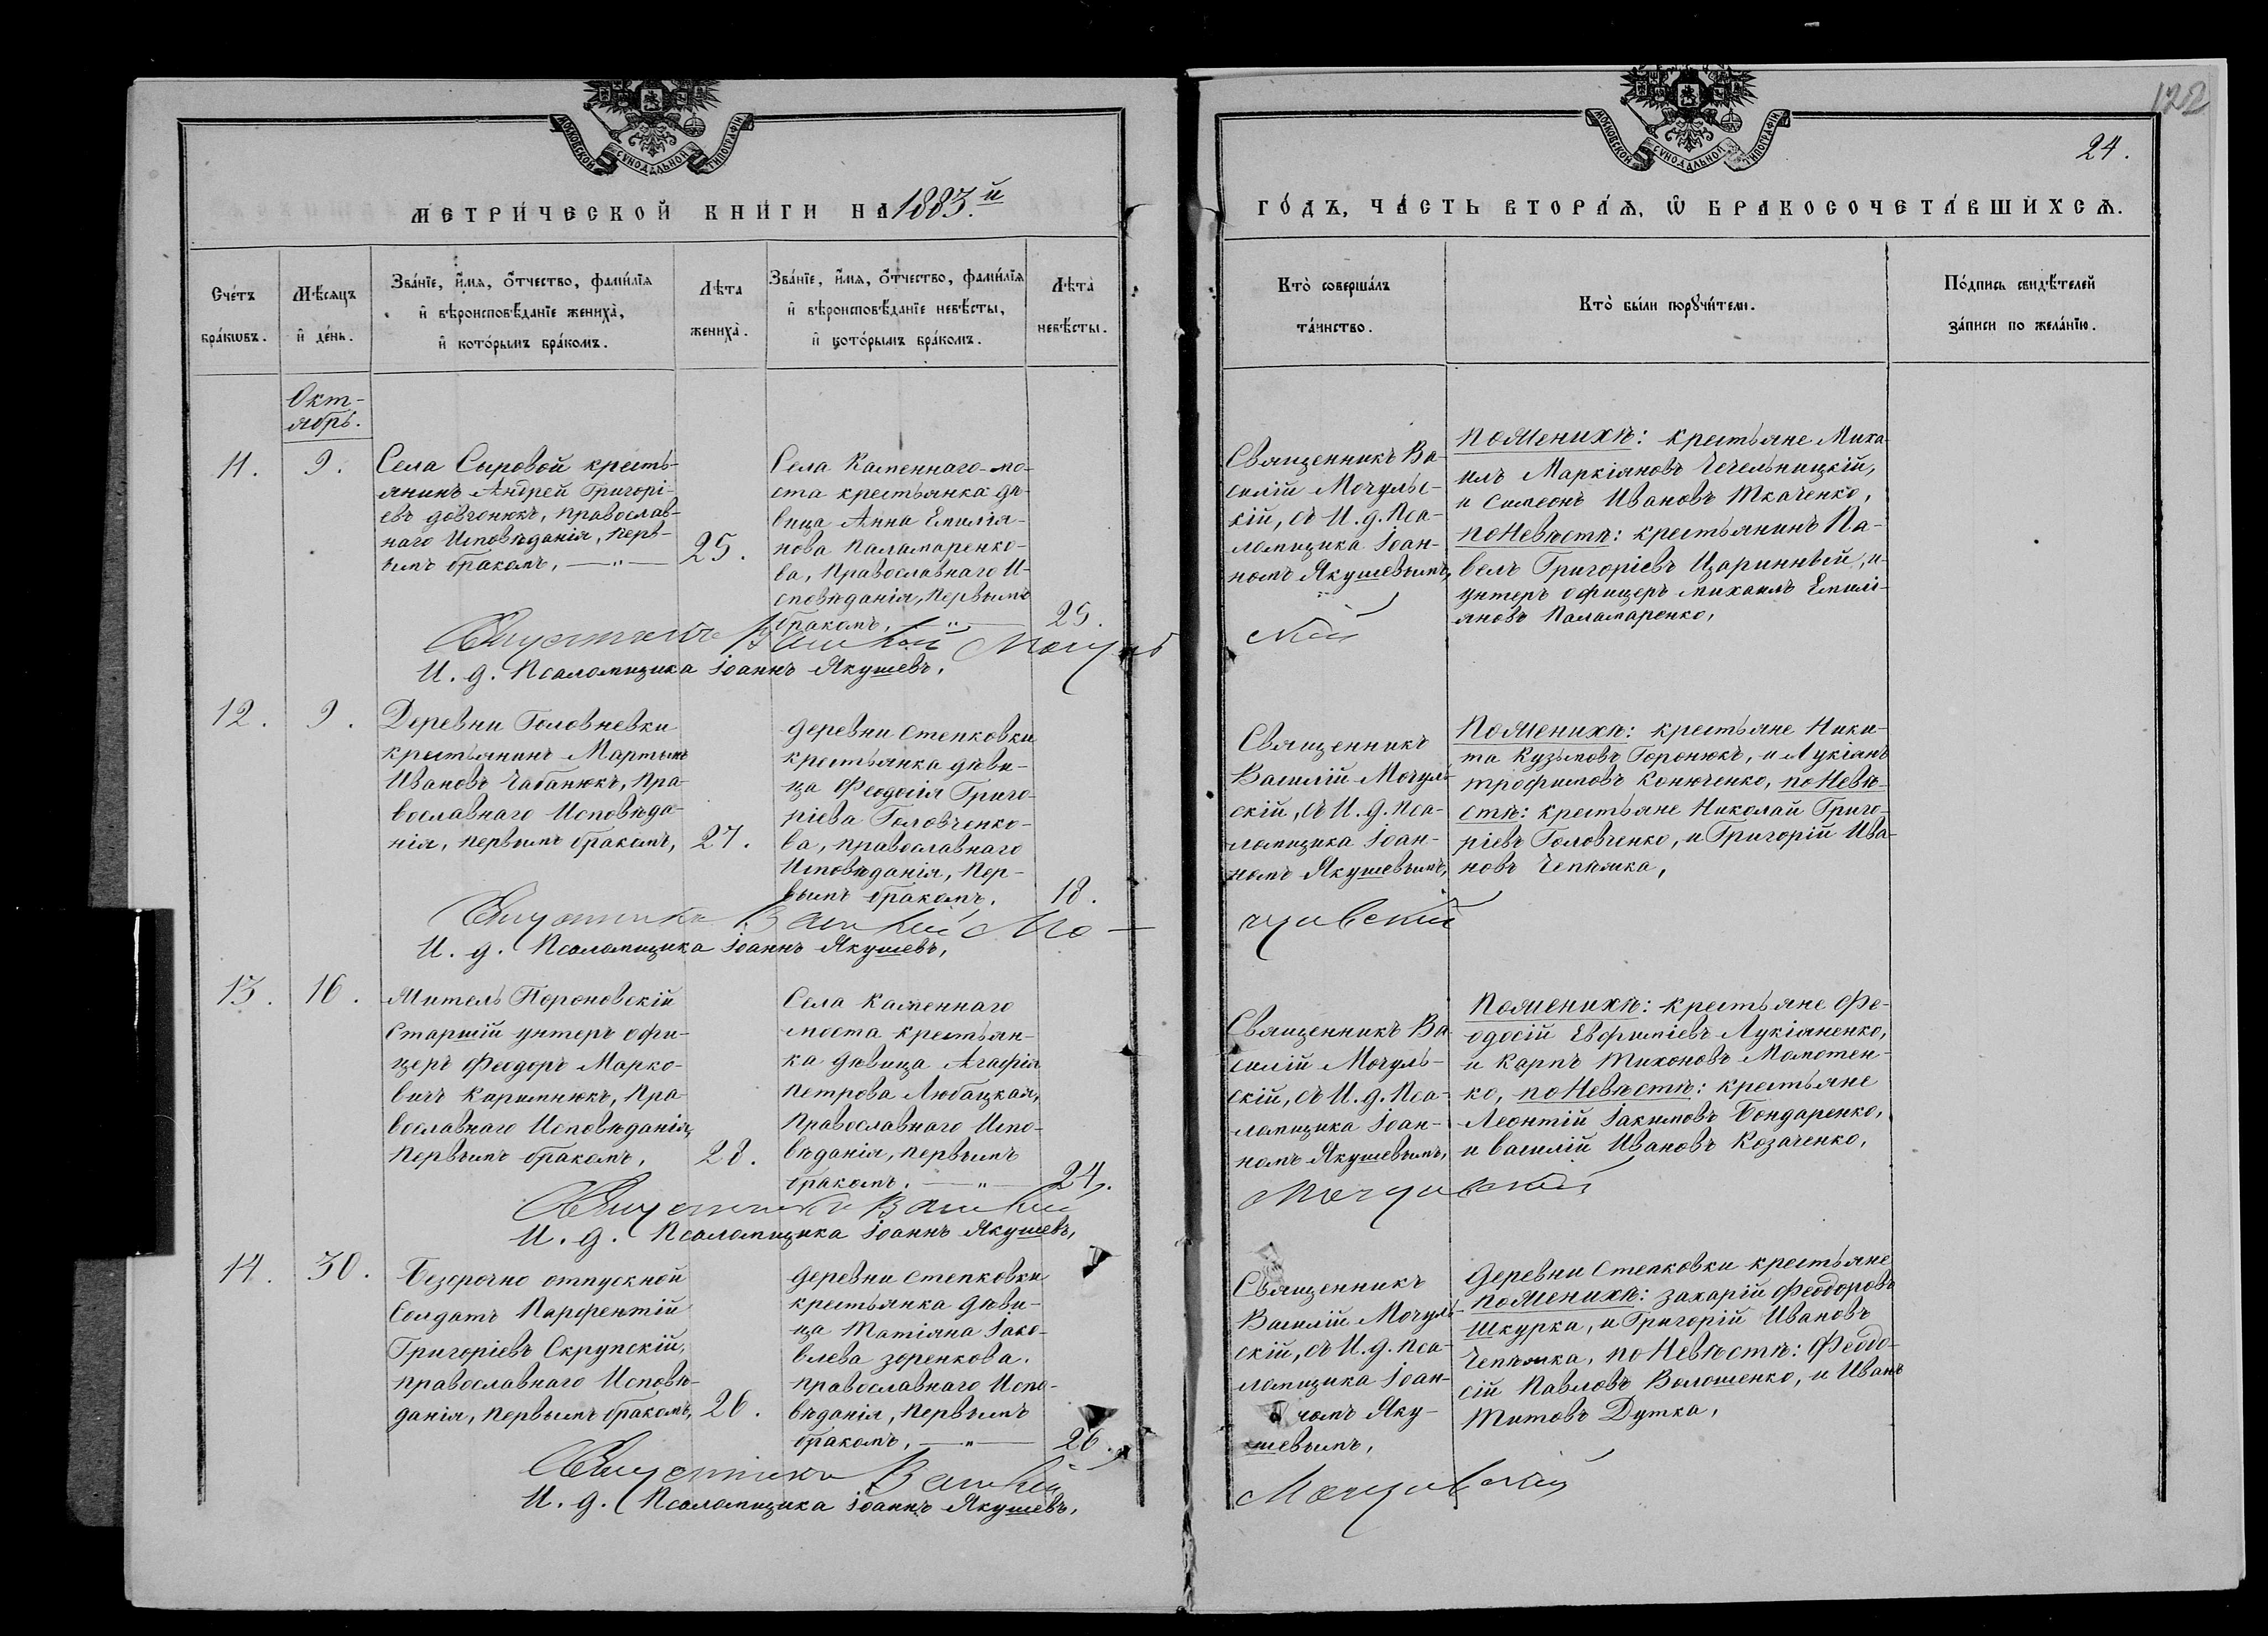 122
24.
МОСКОВСКОЙ СѴНОДАЛЬНОЙ ТИПОГРАФІИ
МОСКОВСКОЙ СѴНОДАЛЬНОЙ ТИПОГРАФІИ
МЕТРИ́ЧЕСКОЙ КНИ́ГИ НА 1883.й
ГО́ДЪ, ЧА́СТЬ ВТОРА́Ѧ, Ѿ БРАКОСОЧЕТА́ВШИХСѦ.
Сче́тъ
бра́кѡвъ.
Мѣ́сѧцъ
и҆ де́нь.
Зва́нїе, и҆́мѧ, ѻ҆́тчество, фами́лїѧ
и҆ вѣроисповѣ́данїе жениха̀,
и҆ кото́рымъ бра́комъ.
Лѣ́та
жениха̀.
Зва́нїе, и҆́мѧ, ѻ҆́тчество, фами́лїѧ
и҆ вѣроисповѣ́данїе невѣ́сты,
и҆ кото́рымъ бра́комъ.
Лѣ́та
невѣ́сты.
Кто̀ соверша́лъ
та́инство.
Кто̀ бы́ли порꙋчи́тели.
По́дпись свидѣ́телей
за́писи по жела́нїю.
Окт-
ябрь.
11.
9.
Села Сыровой кресть-
янинъ Андрей Григорі-
евъ Довгонюкъ, православ-
наго Исповѣданія, перв-
ымъ бракомъ,
25.
Села Каменнаго-мо-
ста крестьянка дѣ-
вица Анна Емилія-
нова Паламаренко-
ва, Православнаго И-
сповѣданія, первымъ
бракомъ,
25.
Священникъ Ва-
силій Мочульс-
кій, съ И. д. Пса-
ломщика Іоан-
номъ Якушевымъ,
по Женихѣ: крестьяне Миха-
илъ Маркіяновъ Чечельницкій,
и Симеонъ Ивановъ Ткаченко,
по Невѣстѣ: крестьянинъ Па-
велъ Григоріевъ Царинный, и
унтеръ офицеръ Михаилъ Емилі-
яновъ Паламаренко,
Священникъ Василій Мочуль
скій
И. д. Псаломщика Іоаннъ Якушевъ,
12.
9.
Деревни Головневки
крестьянинъ Мартынъ
Ивановъ Чабанюкъ, Пра-
вославнаго Исповѣда-
нія, первымъ бракомъ,
27.
деревни Степковки
крестьянка дѣви-
ца Феодосія Григо-
ріева Головченко-
ва, православнаго
Исповѣданія, Пер-
вымъ бракомъ,
18.
Священникъ
Василій Мочуль-
скій, съ И. д. Пса-
ломщика Іоан-
номъ Якушевымъ,
По Женихѣ: крестьяне Ники-
та Кузьмовъ Горонюкъ, и Лукіанъ
Трофимовъ Конюченко, по Невѣ-
стѣ: крестьяне Николай Григо-
ріевъ Головченко, и Григорій Ива-
новъ Чепѣжка,
Священникъ Василій Мо-
чульскій
И. д. Псаломщика Іоаннъ Якушевъ,
13.
16.
Житель Пороновскій
Старшій унтеръ офи-
церъ Феодоръ Марко-
вичъ Каримнюкъ, Пра-
вославнаго Исповѣданія,
Первымъ бракомъ,
28.
Села Каменнаго
моста крестьян-
ка дѣвица Агафія
Петрова Любацкая,
Православнаго Испо-
вѣданія, первымъ
бракомъ.
24.
Священникъ Ва
силій Мочуль-
скій, съ И. д. Пса-
ломщика Іоан-
номъ Якушевымъ,
По Женихѣ: крестьяне Фе-
одосій Евфиміевъ Лукіяненко,
и Карпъ Тихоновъ Мамотен-
ко, по Невѣстѣ: крестьяне
Леонтій Іакимовъ Бондаренко,
и Василій Ивановъ Козаченко,
Священникъ Василій
Мочульскій
И. д. Псаломщика Іоаннъ Якушевъ,
14.
30.
Безсрочно отпускной
Солдатъ Парфентій
Григоріевъ Скрупскій,
православнаго Исповѣ-
данія, первымъ бракомъ,
26.
деревни Степковки
крестьянка дѣви-
ца Татіяна Іако-
влева Зоренкова.
православнаго Испо-
вѣданія, первымъ
бракомъ,
26.
Священникъ
Василій Мочуль-
скій, съ И. д. Пса-
ломщика Іоан-
номъ Яку-
шевымъ,
Деревни Степковки крестьяне
по Женихѣ: Захарій Феодоровъ
Шкурка, и Григорій Ивановъ
Чепѣжка, по Невѣстѣ: Феодо-
сій Павловъ Волошенко, и Иванъ
Титовъ Дутка,
Священникъ Василій
Мочульскій
И. д. Псаломщика Іоаннъ Якушевъ,